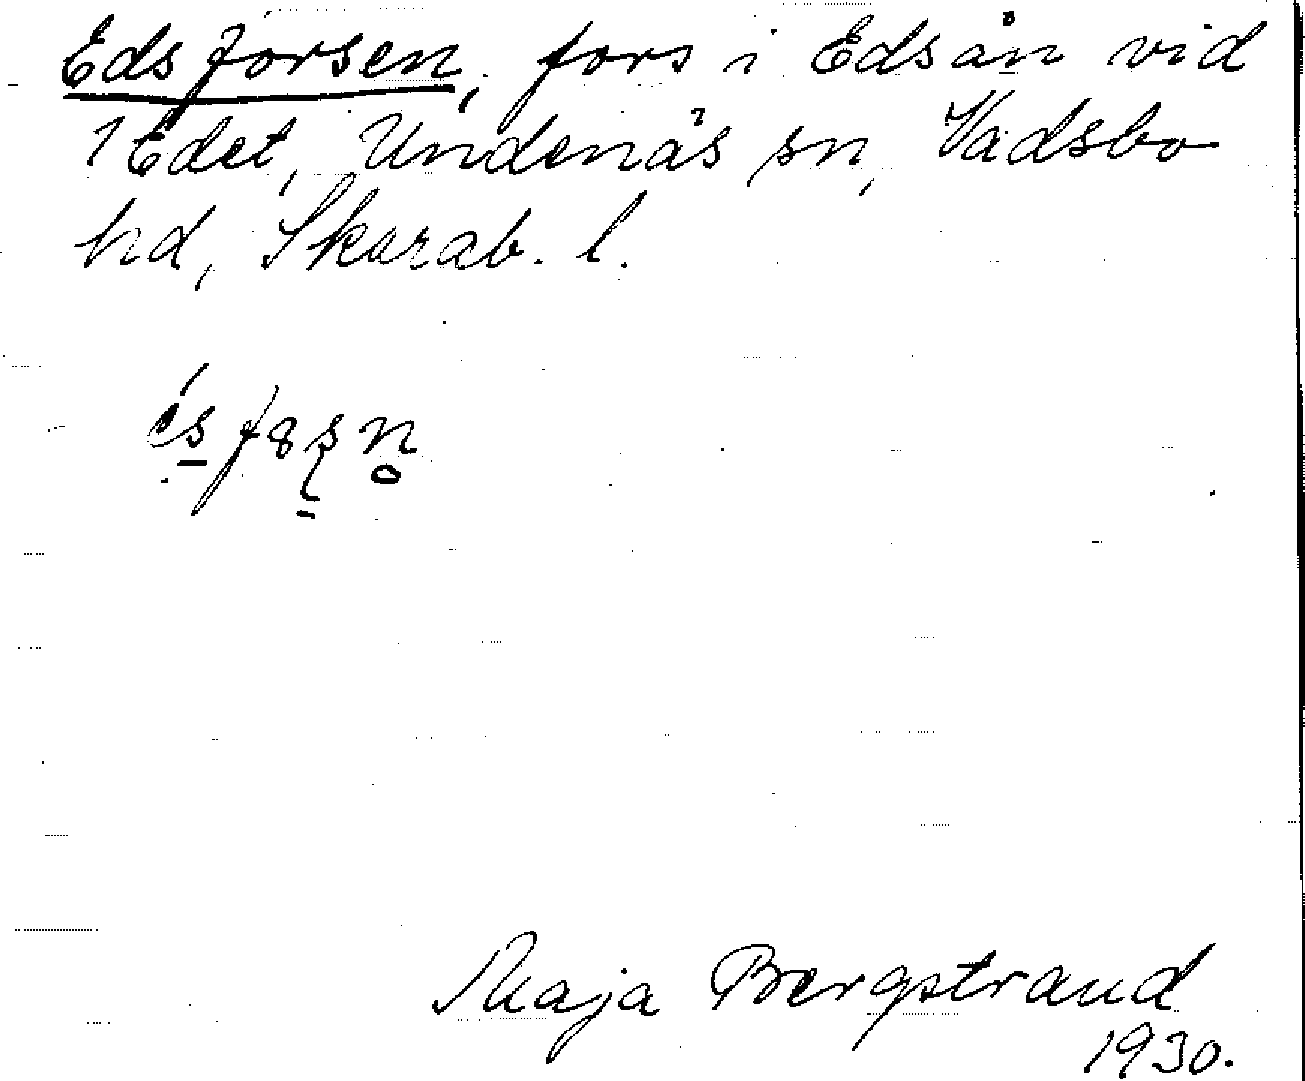 Edsforsen, fors i Edsån vid
1 Edet, Undenäs sn, Vadsbo
hd, Skarab. l.
Maja Bergstrand
1930.